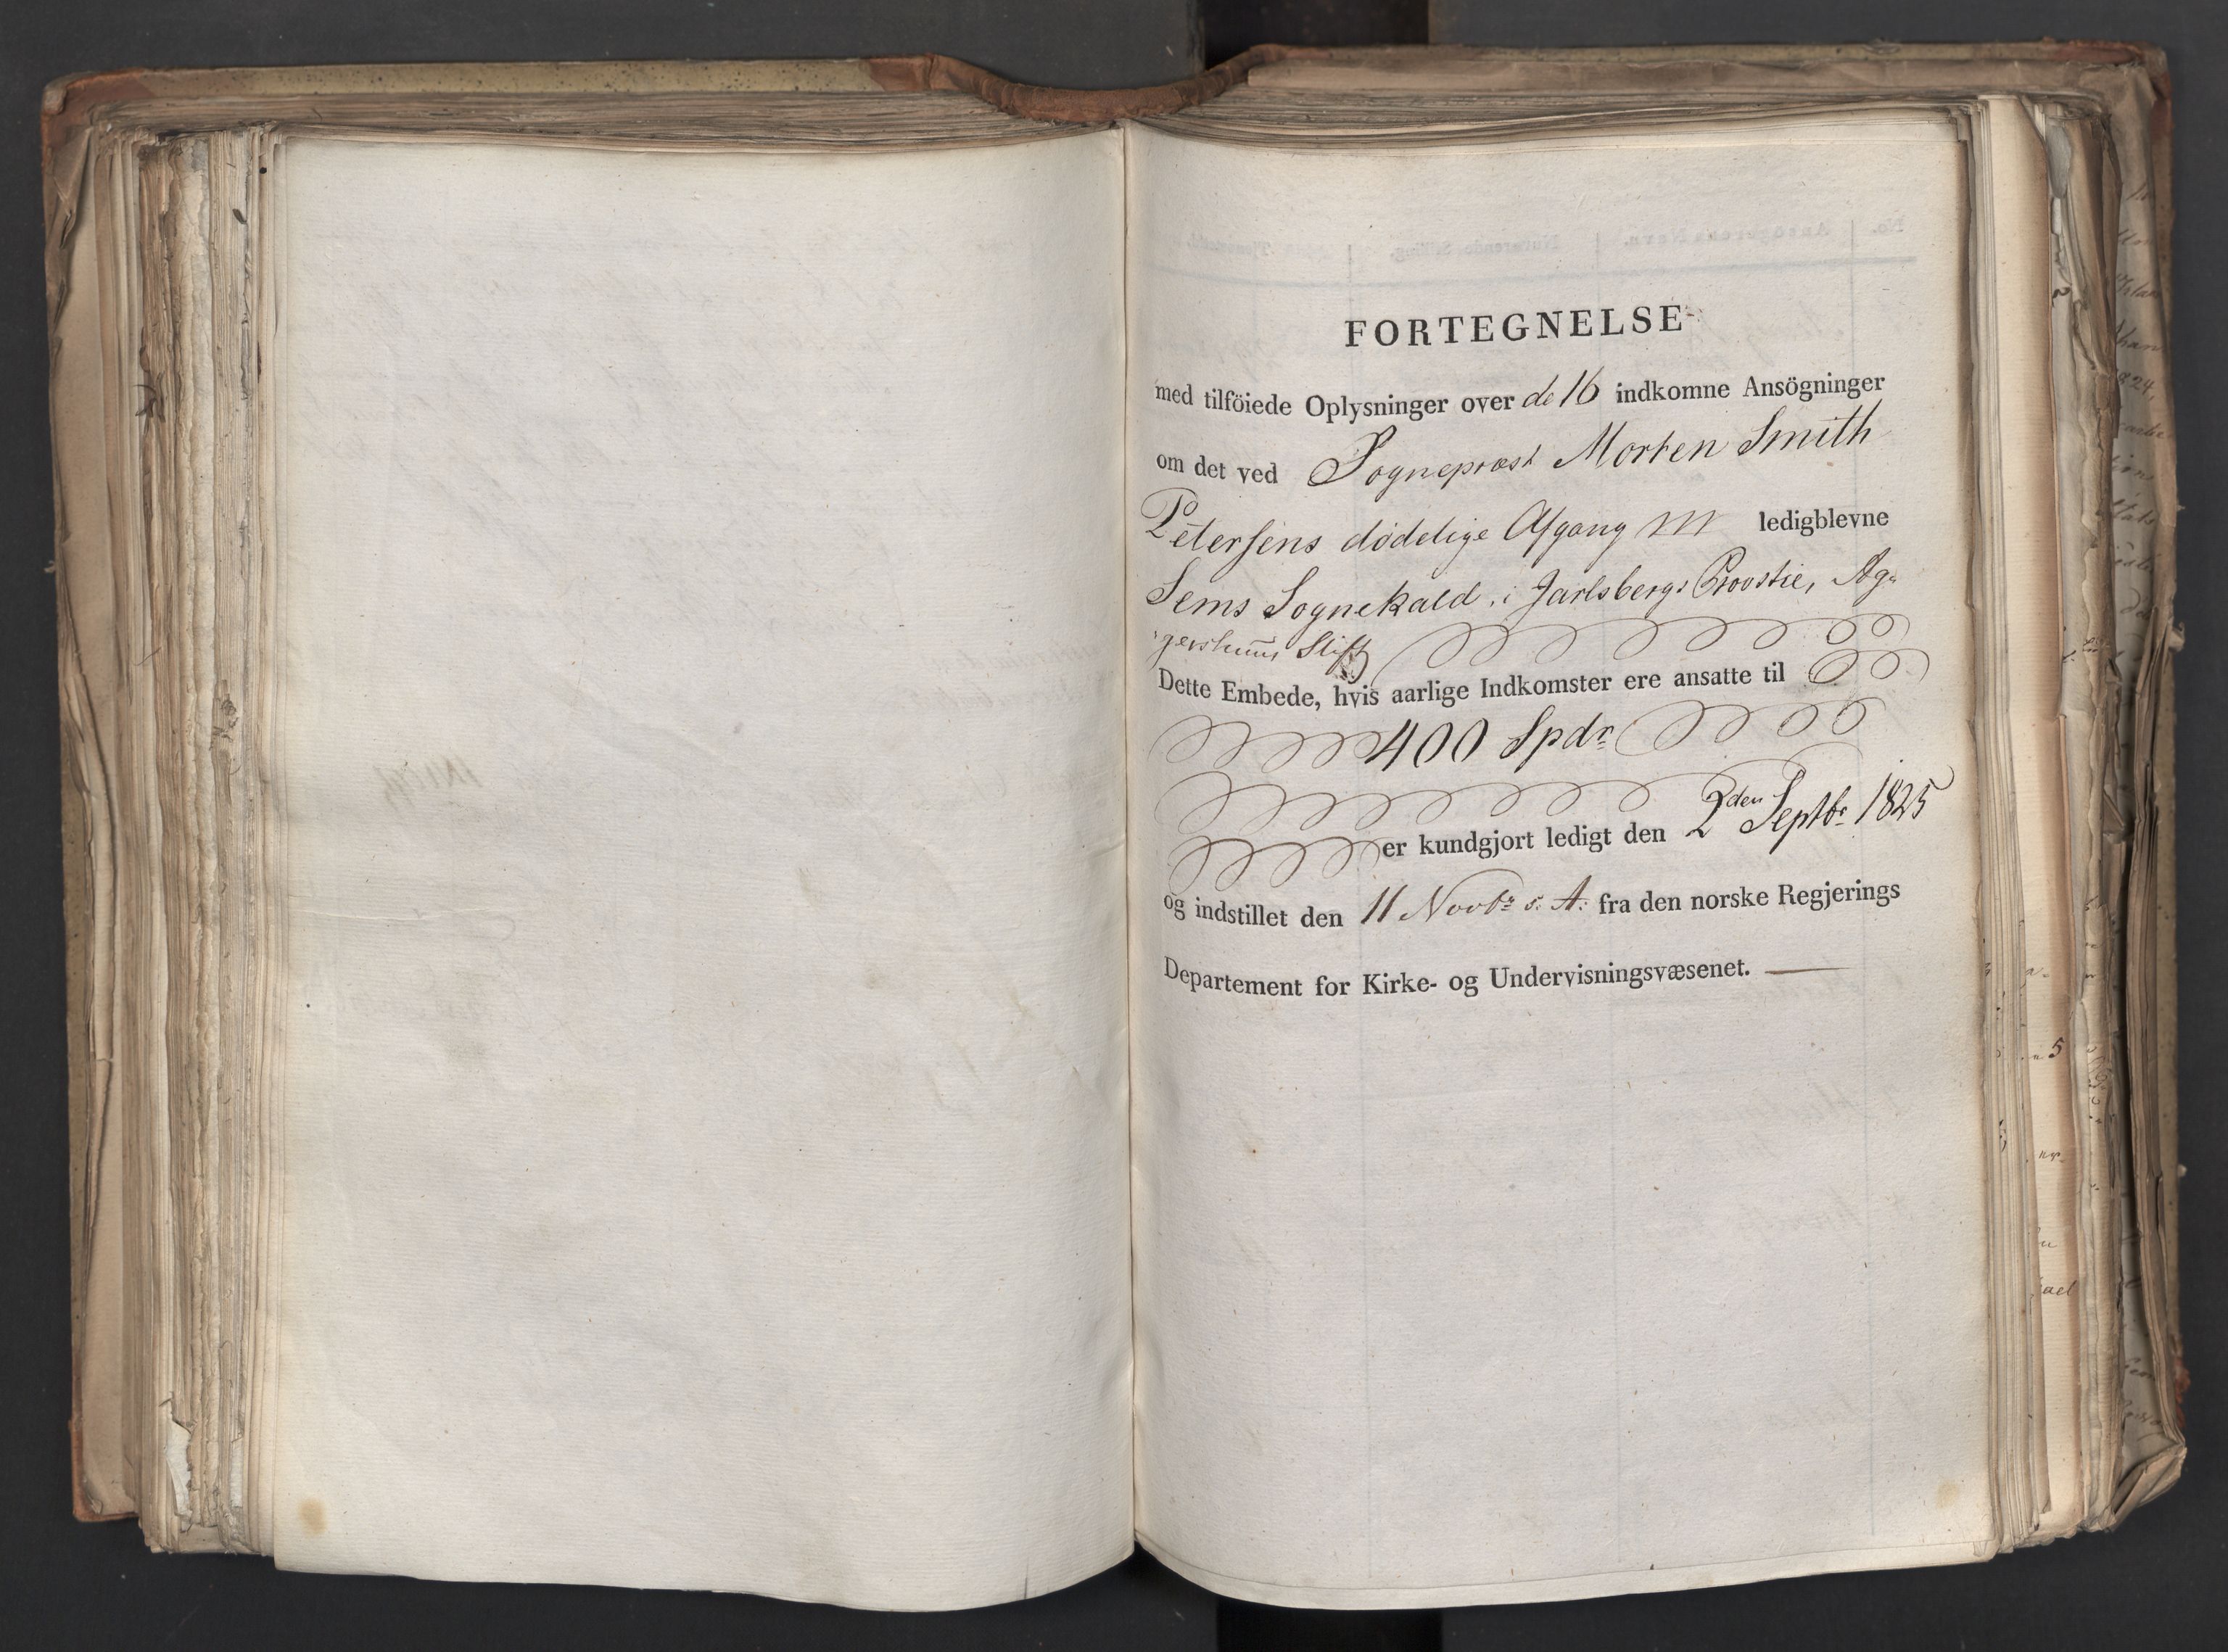 FORTEGNELSE
med tilföiede Oplysninger over de 16 indkomne Ansögninger
om det ved Sognepræst Morten Smith
Petersens dødelige Afgang ledigblevne
Sems Sognekald i Jarlsbergs Provstie, Ag-
gershuus Stift
Dette Embede, hvis aarlige Indkomster ere ansatte til
400 Spdr
er kundgjort ledigt den 2den Septbr 1825
og indstillet den 11 Novbr s. A. fra den norske Regjerings
Departement for Kirke- og Undervisningsvæsenet.